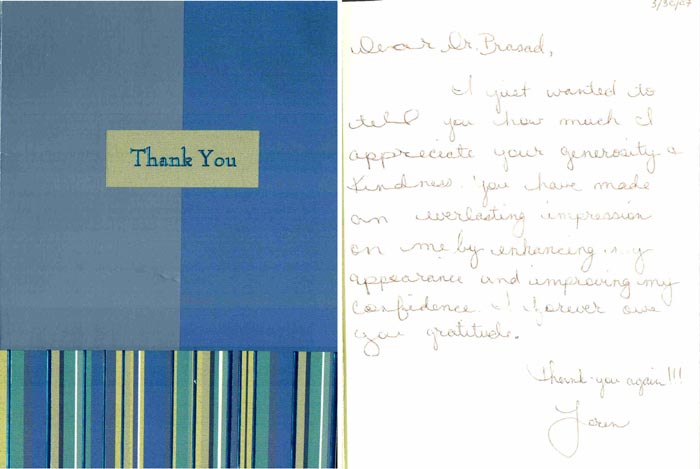 Thank You
3/30/07
Dear Dr. Prasad,
I just wanted to
tell you how much I
appreciate your generosity &
kindness. You have made
an everlasting impression
on me by enhancing my
appearance and improving my
confidence. I forever owe
you gratitude.
Thank-you again!!!